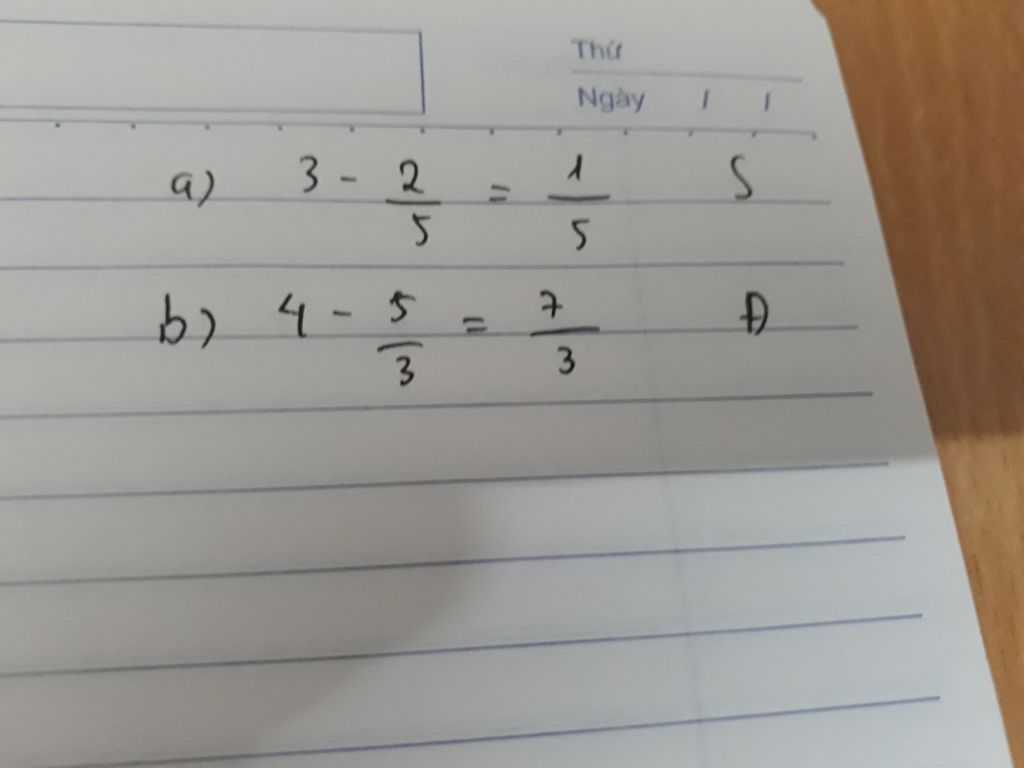 Thứ
Ngày / /
a) 3 - 2/5 = 1/5 S
b) 4 - 5/3 = 7/3 Đ